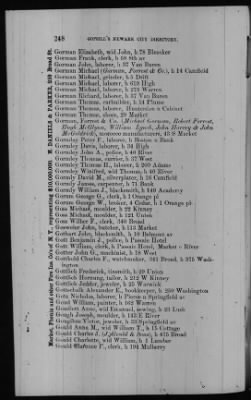 248 GOPSILL'S NEWARK CITY DIRECTORY.
Gorman Elizabeth, wid John, h 78 Bleecker
Gorman Frank, clerk, h 98 8th av
Gorman John, laborer, h 37 Van Buren
Gorman Michael (Gorman, Forrest & Co.), h 14 Camfield
Gorman Michael, grinder, h 5 Drift
Gorman Michael, laborer, h 619 High
Gorman Michael, laborer, h 273 Warren
Gorman Richard, laborer, h 37 Van Buren
Gorman Thomas, carbuilder, h 14 Plume
Gorman Thomas, laborer, Hunterdon n Cabinet
Gorman Thomas, shoes, 29 Market
Gorman, Forrest & Co. (Michael Gorman, Robert Forrest,
Hugh McGlynn, William Lynch, John Harvey & John
McGoldrick), morocco mnfrs, 47 S Market
Gormley Peter F., laborer, h Boston n Bank
Gormley Davis, laborer, h 34 High
Gormley John A., police, h 40 River
Gormley Thomas, currier, h 37 West
Gormley Thomas H., laborer, h 200 Adams
Gormley Winifred, wid Thomas, h 40 River
Gormley David M., silverplater, h 16 Camfield
Gormly James, carpenter, h 71 Bank
Gormly William J., blacksmith, h 149 Academy
Gorum George G., clerk, h 1 Orange pl
Gorum George W., broker, 4 Cedar, h 1 Orange pl
Goss Michael, moulder, h 22 Kinney
Goss Michael, moulder, h 121 Union
Goss Wilbur F., clerk, 340 Broad
Gosweiler John, butcher, h 113 Market
Gothart John, blacksmith, h 10 Belmont av
Gott Benjamin J., police, h Passaic Hotel
Gott William, clerk, h Passaic Hotel, Market c River
Gotter John G., machinist, h 18 West
Gotthold Charles F., watchmaker, 361 Broad, h 375 Washington
Gottlich Frederick, tinsmith, h 39 Union
Gottlich Hornung, tailor, h 212 W Kinney
Gottlich Jedder, jeweler, h 25 Warwick
Gottschalk Alexander E., bookkeeper, h 260 Washington
Gotz Nicholas, laborer, h Pierce n Springfield av
Goud William, painter, h 162 Warren
Goudron Anne, wid Emanuel, sewing, h 23 Lock
Gough Joseph, moulder, h 145 E River
Gougilion Victor, jeweler, h 33 Springfield av
Gould Anna M., wid William T., h 15 Cottage
Gould Charles J. (Lyttworld & Gould), h 675 Broad
Gould Charlotte, wid William, h 1 Lumber
Gould Clarence F., clerk, h 194 Mulberry